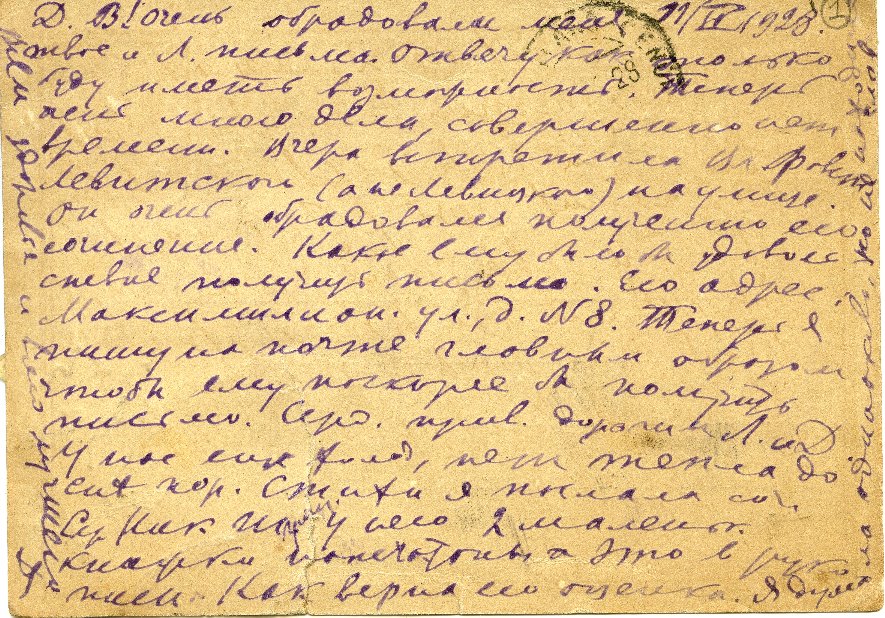 Д. В! Очень обрадовали меня 11/IV 1928. (1)
твое и Л. письма. Отвечу как только
буду иметь возможность. Теперь
очень много дела, совершенно нет
времени. Вчера встретила Вл.
Левитской (а не Левицкого) на улице.
Он очень обрадовался получению его
сочинение. Какое ему было удоволь
ствие получить письмо. Его адрес:
Максимилиан. ул., д. N 8. Теперь я
пишу на почте главным образом
чтобы ему поскорее получить
письмо. Серд. прив. дорогим Л. и Д
У нас еще холод, нет тепла до
сих пор. Стихи я послала
Как у него 2 маленьк.
книжки напечатаны а это в руко
писи. Как верна его оценка. Я думала
однако, но
28